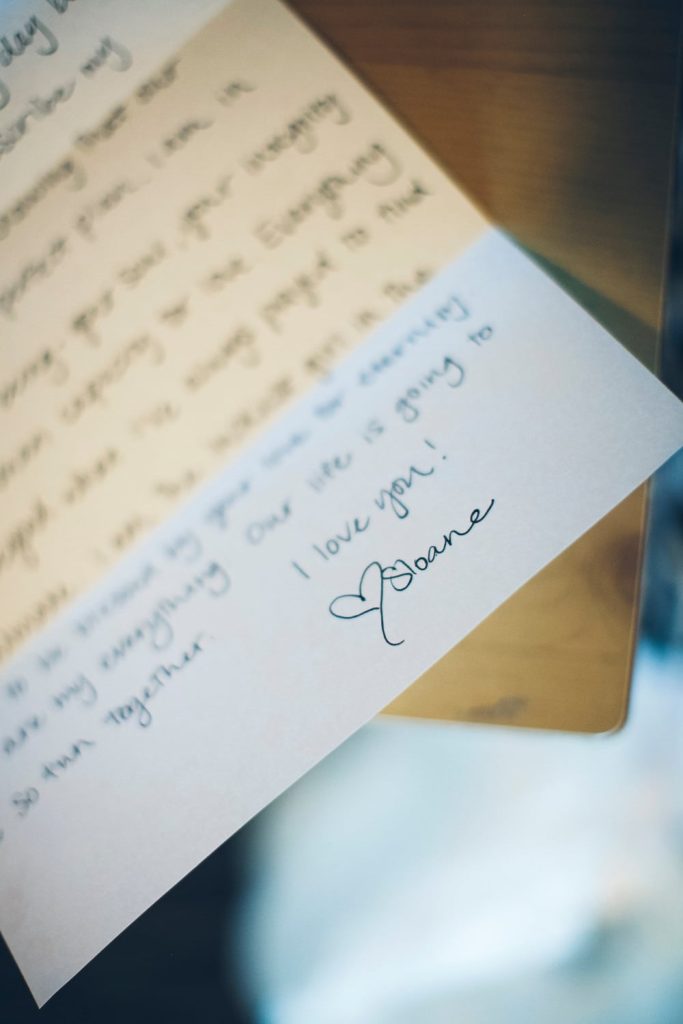 day
scribe my
that our
perfect plan. I am in
your soul, your integrity
capacity for the Everything
when I've always prayed to find
I am the luckiest girl in the
to be blessed by your love for eternity
are my everything Our life is going to
so fun together.
I love you!
Sloane